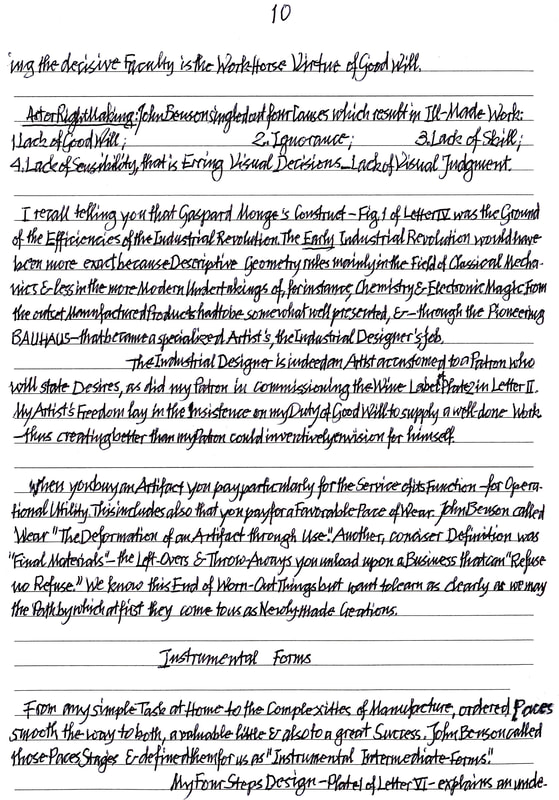 10
ing the decisive Faculty is the WorkHorse Virtue of Good Will.
Actor RightMaking: John Benson singled out four Causes which result in Ill-Made Work:
1. Lack of Good Will; 2. Ignorance; 3. Lack of Skill;
4. Lack of Sensibility, that is Erring Visual Decisions – Lack of Visual Judgment.
I recall telling you that Gaspard Monge's Construct – Fig. 1 of Letter IV was the Ground
of the Efficiencies of the Industrial Revolution. The Early Industrial Revolution would have
been more exact because Descriptive Geometry rules mainly in the Field of Classical Mecha-
nics & less in the more Modern Undertakings of, for instance, Chemistry & Electronic Magic. From
the outset Manufactured Products had to be somewhat well presented, & – through the Pioneering
BAUHAUS – that became a specialized Artist's, the Industrial Designer's Job.
The Industrial Designer is indeed an Artist accustomed to a Patron who
will state Desires, as did my Patron in Commissioning the Wine Label of Plate 2 in Letter II.
My Artist's Freedom lay in the Insistence on my Duty of Good Will to supply a well-done Work
– thus creating better than my Patron could inventively envision for himself.
When you buy an Artifact you pay particularly for the Service of its Function – for Opera-
tional Utility. This includes also that you pay for a Favorable Pace of Wear. John Benson called
Wear "The Deformation of an Artifact through Use." Another, conciser Definition was
"Final Materials" – the Left-Overs & Throw-Aways you unload upon a Business that can "Refuse
no Refuse." We know this End of Worn-Out Things but want to learn as clearly as we may
the Path by which at first they come to us as Newly made Creations.
Instrumental Forms
From any simple Task at Home to the Complexities of Manufacture, ordered Paces
smooth the way to both, a valuable little & also to a great Success. John Benson called
those Paces Stages & defined them for us as "Instrumental Intermediate Forms."
My Four Steps Design – Plate 1 of Letter VI – explains an unde-